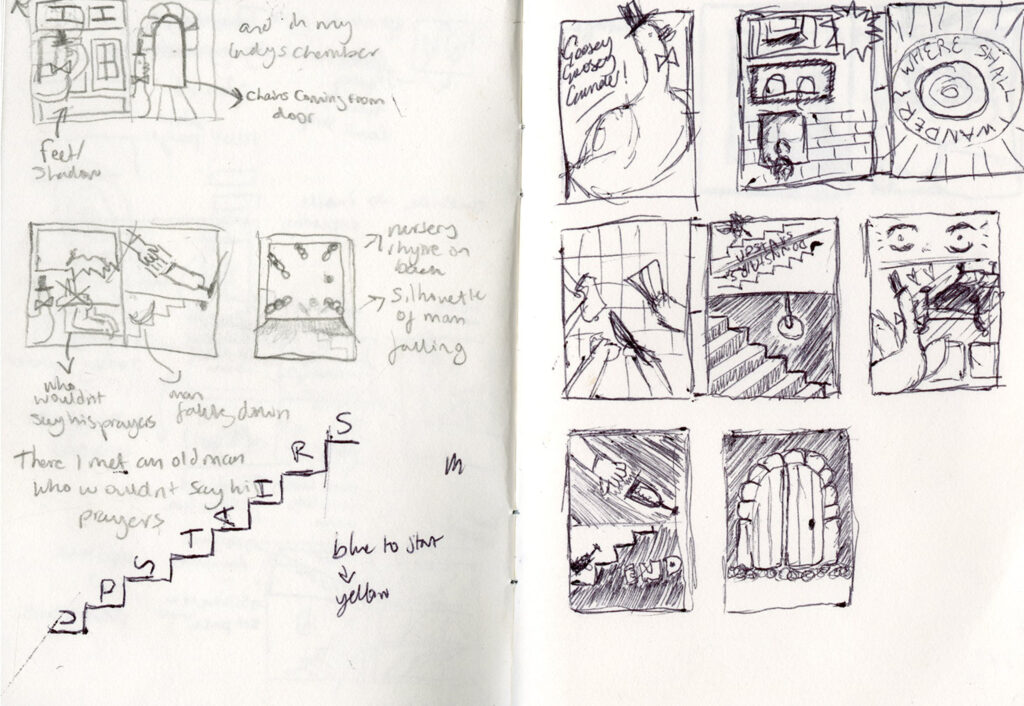 and in my
ladys chamber
chains coming from
door
feet/
shadow
nursery
rhyme on
back
silhouette
of man
falling
who
wouldnt
say his prayers
man
falling down
There I met an old man
who wouldnt say his
prayers
UPSTAIRS
blue to start
yellow
Goosey
Goosey
Gander!
WHERE SHALL
I WANDER
DOWNSTAIRS
END